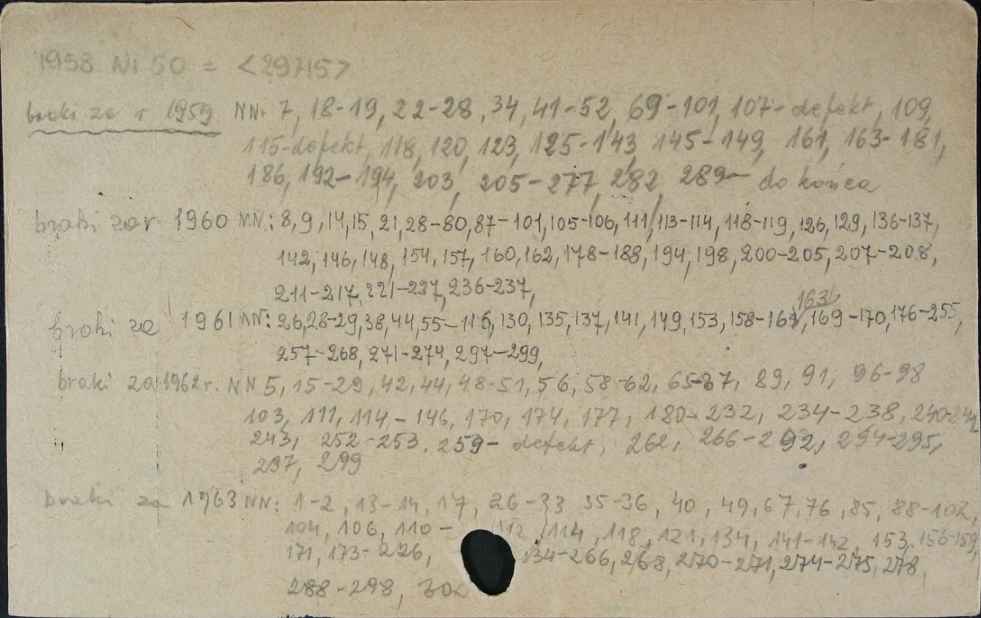 1958 N1 50 = <29715>
braki za r 1959 NN. 7, 18-19, 22-28, 34, 41-52, 69-101, 107-defekt, 109,
115-defekt, 118, 120, 123, 125-143, 145-149, 161, 163-181,
186, 192-194, 203, 205-277, 282, 289- do końca
braki za r 1960 NN: 8,9, 14,15, 21, 28-80, 87-101, 105-106, 111, 113-114, 118-119, 126, 129, 136-137,
142, 146, 148, 154, 157, 160, 162, 178-188, 194, 198, 200-205, 207-208,
211-217, 221-227, 236-237,
163
braki za 1961 NN: 26, 28-29, 38, 44, 55-116, 130, 135, 137, 141, 149, 153, 158-161, 169-170, 176-255,
257-268, 271-274, 297-299,
braki za 1962 r. NN 5, 15-29, 42, 44, 48-51, 56, 58-62, 65-67, 89, 91, 96-98
103, 111, 114-146, 170, 174, 177, 180-232, 234-238, 240-
243, 252-253, 259- defekt, 262, 266-292, 294-295,
297, 299
braki za 1963 NN: 1-2, 13-14, 17, 26-33 35-36, 40, 49, 67, 76, 85, 88-102,
104, 106, 110- 112, 114, 118, 121, 134, 141-142, 153, 156-159,
171, 173-226, 34-266, 268, 270-271, 274-275, 278,
288-298, 302